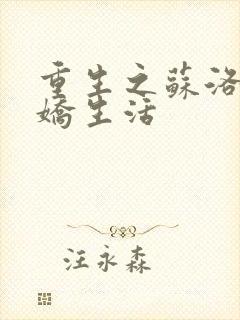 重生之蘇洛
嬌生活
汪永森